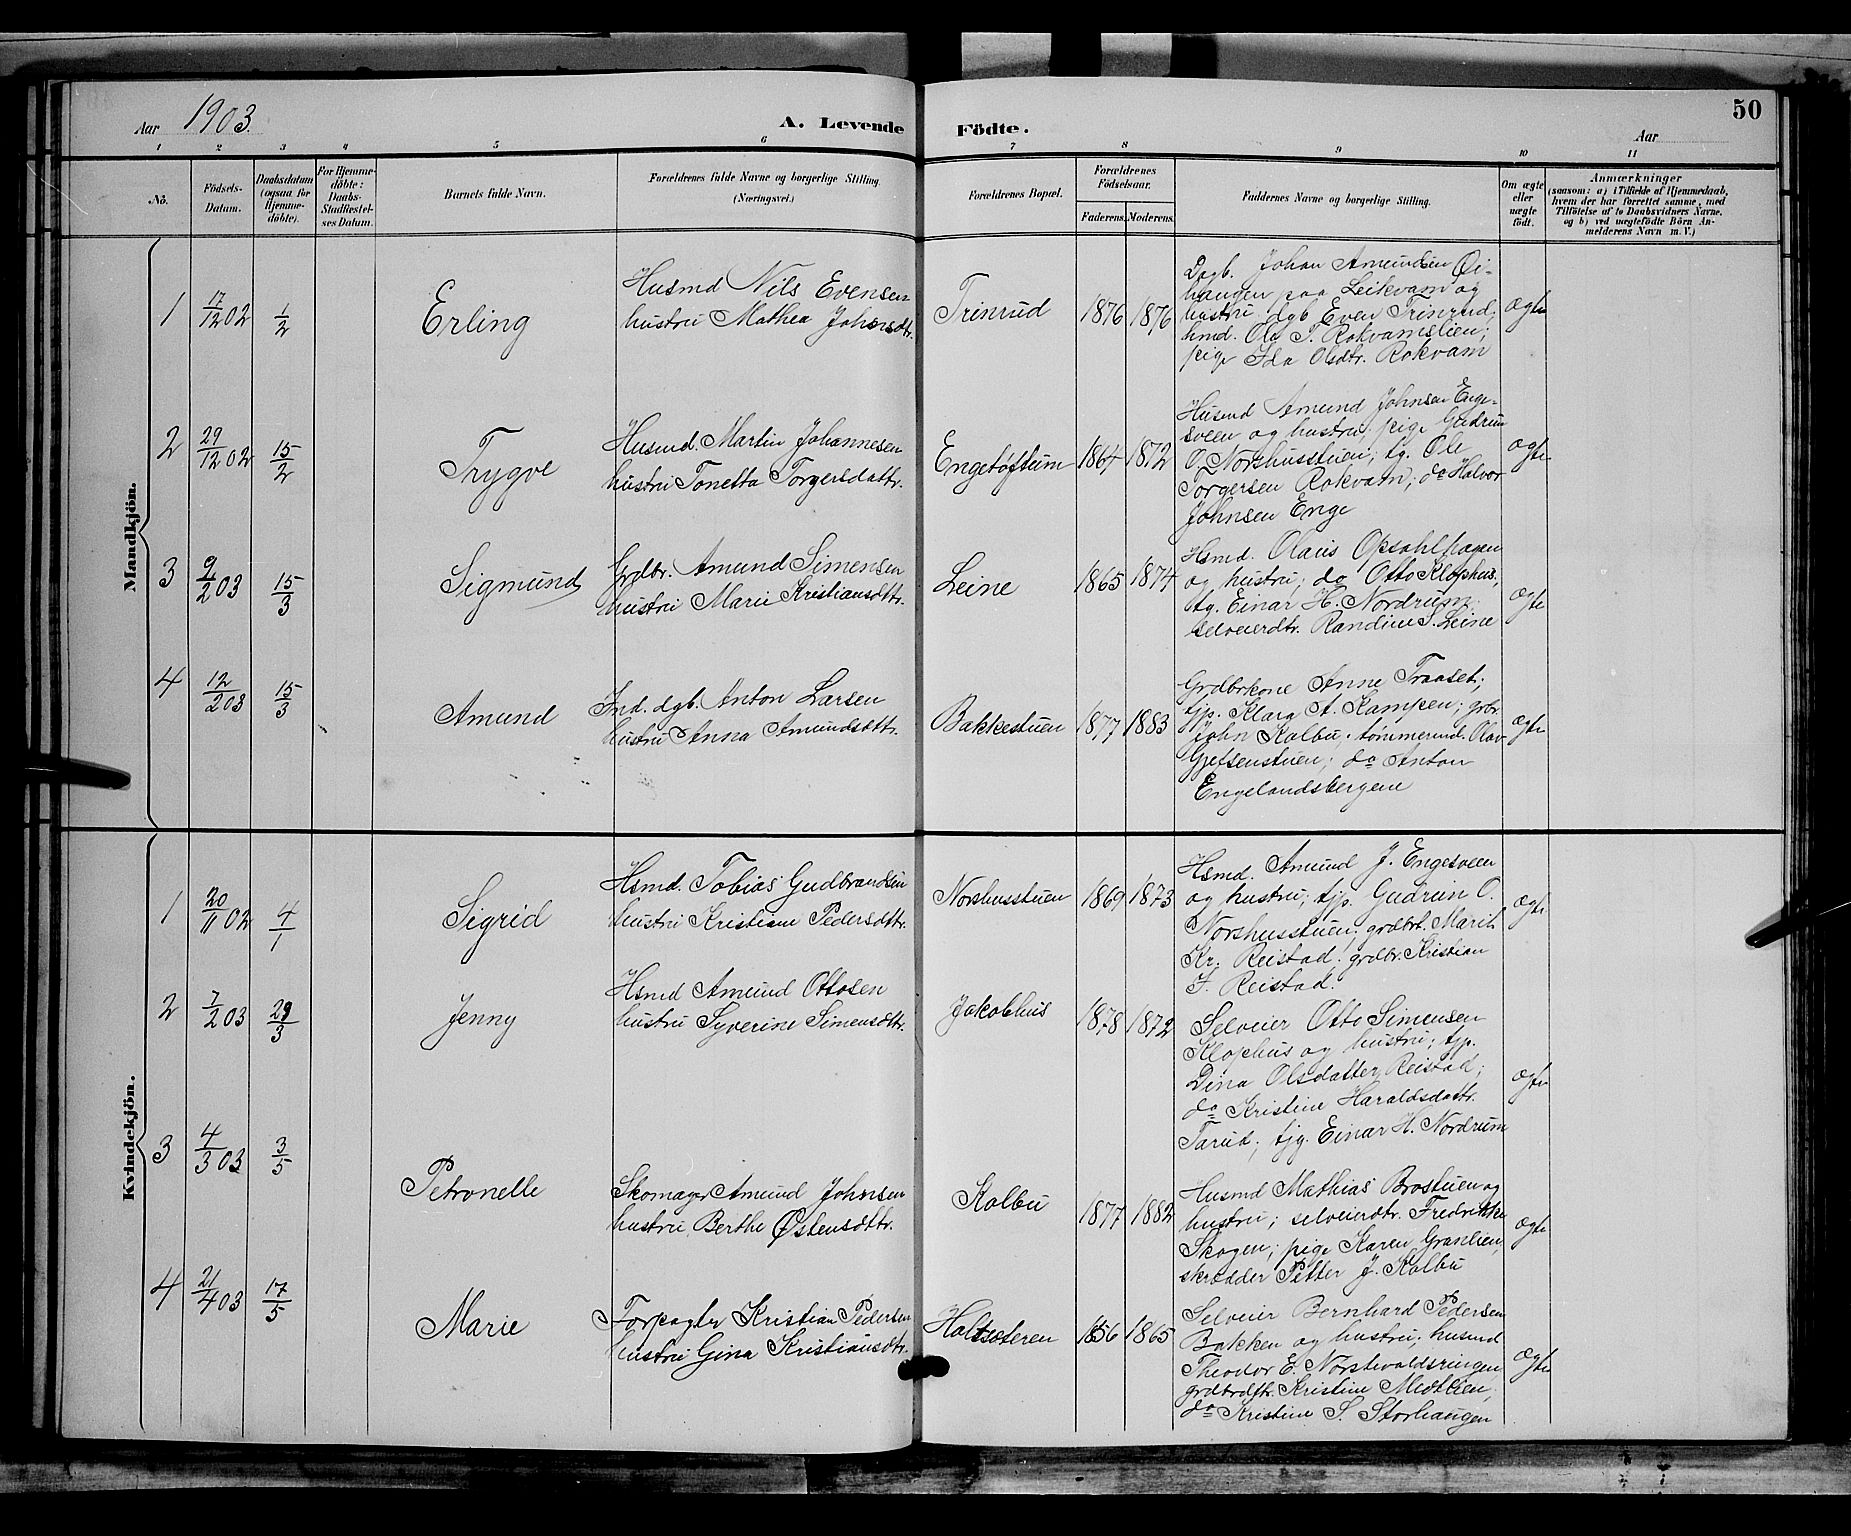 50
Aar 1903. A. Levende Födte. Aar
1 2 3 4 5 6 7 8 9 10 11
No. Födsels-Datum. Daabsdatum (ogsaa for Hjemme-döbte). For Hjemme-döbte: Daabs-Stadfæstel-ses Datum. Barnets fulde Navn. Forældrenes fulde Navne og borgerlige Stilling. (Næringsvei.) Forældrenes Bopæl. Forældrenes Födselsaar. Faderens. Moderens. Faddernes Navne og borgerlige Stilling. Om ægte eller uægte födt. Anmærkninger
(saasom: a) i Tilfælde af Hjemmedaab,
hvem der har forrettet samme, med
Tilföielse af to Daabsvidners Navne,
og b) ved uægtefödte Börn An-
melderens Navn m. V.)
Mandkjön.
1 17/12 02 1/2 Erling
Husmd Nils Evensen
hustru Mathea Johnsdtr.
Trinrud 1876 1876
Dagb. Johan Amundsen Øi-
haugen paa Leikvam og
hustru; dgb Even Trinrud;
hmd. Ole T. Rokvamslien;
pige Ida Olsdtr. Rokvam
Ægte
2 29/12 02 15/2 Trygve
Husmd. Martin Johannesen
hustru Tonetta Torgersdattr.
Engetøftum 1867 1872
Husmd Amund Johnsen Enge-
sveen og hustru; pige Gudrun
O. Norshusstuen; tg. Ole
Torgersen Rokvam; do Halvor
Johnsen Enge
ægte
3 9/2 03 15/3 Sigmund
Grdbr. Amund Simensen
hustru Marie Kristiansdttr.
Leine 1865 1874
Hsmd. Olaus Opsahlhagen
og hustru; do Otto Klophus;
tg. Einar H. Nordrum;
selveierdtr. Randine S. Leine
Ægte
4 12/2 03 15/3 Amund
Ind. dgb. Anton Larsen
hustru Anna Amundsdttr.
Bakkestuen 1877 1883
Grdbrkone Anne Traaset;
tjp. Klara A. Kampen; grbr
John Kalbu; tømmermd. Olav
Gjefsenstuen; do Anton
Engelandsbergene
Ægte
Kvindekjön.
1 20/11 02 4/1 Sigrid
Hsmd. Tobias Gudbrandsen
hustru Kristiane Pedersdttr.
Norshusstuen 1869 1873
Hsmd. Amund J. Engesveen
og hustru; tjp. Gudrun O.
Norshusstuen; grdbrt. Marit
Kr. Reistad; grdbr. Kristian
J. Reistad.
Ægte
2 7/2 03 29/3 Jenny
Hsmd Amund Ottosen
hustru Syverine Simensdttr.
Jakobhus 1878 1872
Selveier Otto Simensen
Klophus og hustru; tjp.
Dina Olsdatter Reistad;
do Kristine Haraldsdattr.
Tarud; tjg. Einar H. Nordrum
Ægte
3 4/3 03 3/5 Petronelle
Skomager Amund Johnsen
hustru Berthe Østensdttr.
Kalbu 1877 1882
Husmd Mathias Brostuen og
hustru; selveierdtr. Fredrikke
Skogen; pige Karen Granlien
skrædder Petter J. Kalbu
Ægte
4 21/4 03 17/5 Marie
Forpagter Kristian Pedersen
hustru Gina Kristiansdtr.
1856 1865
Selveier Bernhard Pedersen
Bakken og hustru; husmd
Theodor E. Norstvoldsringen,
grdbrdtr. Kristine Medtlien,
do Kristine S. Storhaugen
Ægte